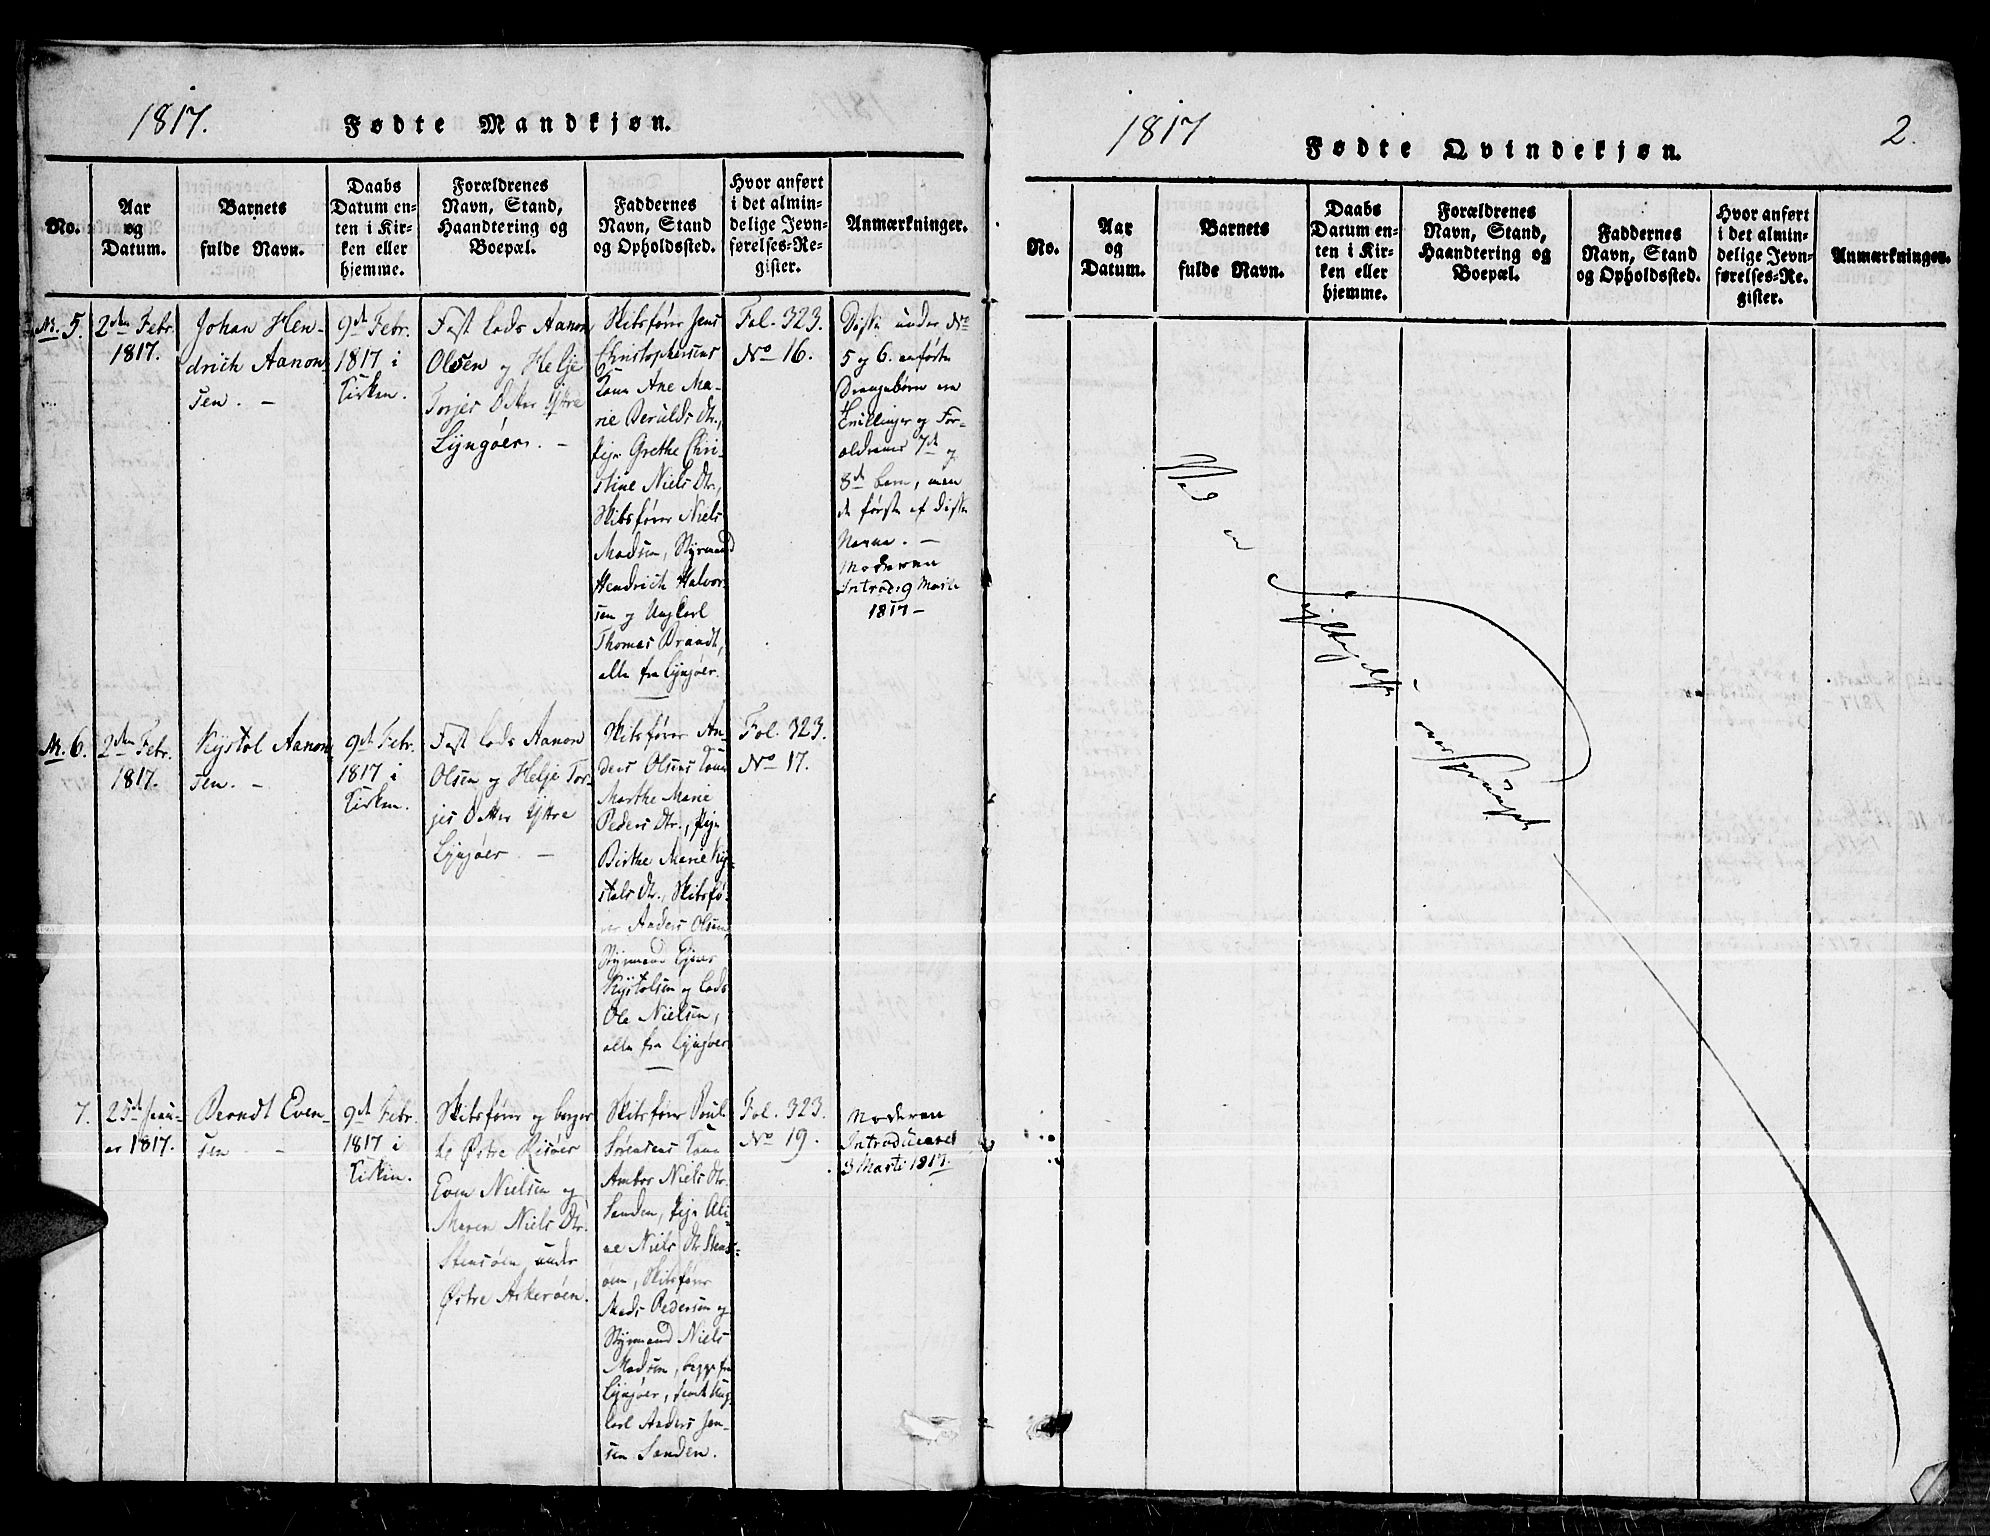 1817.
Fødte Mandkjøn.
No.
Aar
og
Datum.
Barnets
fulde Navn.
Daabs
Datum en-
ten i Kir-
ken eller
hjemme.
Forældrenes
Navn, Stand,
Haandtering og
Boepæl.
Faddernes
Navn, Stand
og Opholdssted.
Hvor anført
i det almin-
delige Jevn-
førelses-Re-
gister.
Anmærkninger.
N. 5.
2den Febr.
1817.
Johan Hen-
drich Aanon
sen. -
9de Febr.
1817 i
Kirken.
Fast Lods Aanon
Olsen og Helje
Torjes Datter Yttre
Lyngøer. -
Skibsfører Jens
Christophersens
Kone Ane Ma-
rie Berulds Dtr.,
Pige Grethe Chri-
stine Niels Dtr.,
Skibsfører Niels
Madsen, Styrmand
Hendrich Halvor-
sen og Ungkarl
Thomas Brandt,
alle fra Lyngøer.
Fol. 323.
No 16.
Disse under No
5 og 6. anførte
Drengebørn ere
Tvillinger og For-
ældrenes 7de og
8de Barn, men
de første af disse
Navne. -
Moderen
Introd: 9 Marti
1817 -
N. 6.
2den Febr.
1817.
Kystol Aanon
sen. -
9de Febr.
1817 i
Kirken.
Fast Lods Aanon
Olsen og Helje Tor-
jes Datter Yttre
Lyngøer. -
Skibsfører An-
ders Olsens Kone
Marthe Marie
Peders Dtr., Pige
Birthe Marie Ky-
stols Dtr., Skibsfø-
rer Anders Olsen,
Styrmand
Kystolsen og Lods
Ole Nielsen,
alle fra Lyngøer
Fol. 323.
No 17.
7.
25de Janu-
ar 1817.
Berndt Even-
sen -
9de Febr.
1817 i
Kirken.
Skibsfører og borger
til Østre Risøer
Even Nielsen og
Maren Niels Dtr.
Stensøen under
Østre Askerøen.
Skibsfører Poul
Sørensens Kone
Ambor Niels Dtr.
Sanden, Pige Ali-
ne Niels Dtr. Stens-
øen, Skibsfører
Mads Pedersen og
Styrmand Niels
Madsen, begge fra
Lyngøer, samt Ung-
karl Anders Jen-
sen Sanden.
Fol. 323.
No 19.
Moderen
Introduceret
3 Marti 1817.
1817
Fødte Qvindekjøn.
2.
No.
Aar
og
Datum.
Barnets
fulde Navn.
Daabs
Datum en-
ten i Kir-
ken eller
hjemme.
Forældrenes
Navn, Stand,
Haandtering og
Boepæl.
Faddernes
Navn, Stand
og Opholdssted.
Hvor anført
i det almin-
delige Jevn-
førelses-Re-
gister.
Anmærkninger.